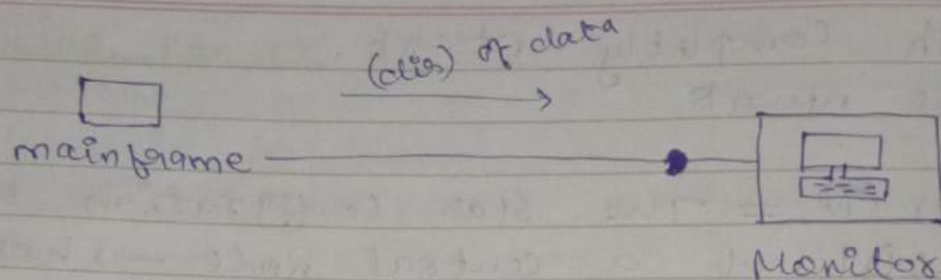 (dir) of data
mainframe
Monitor